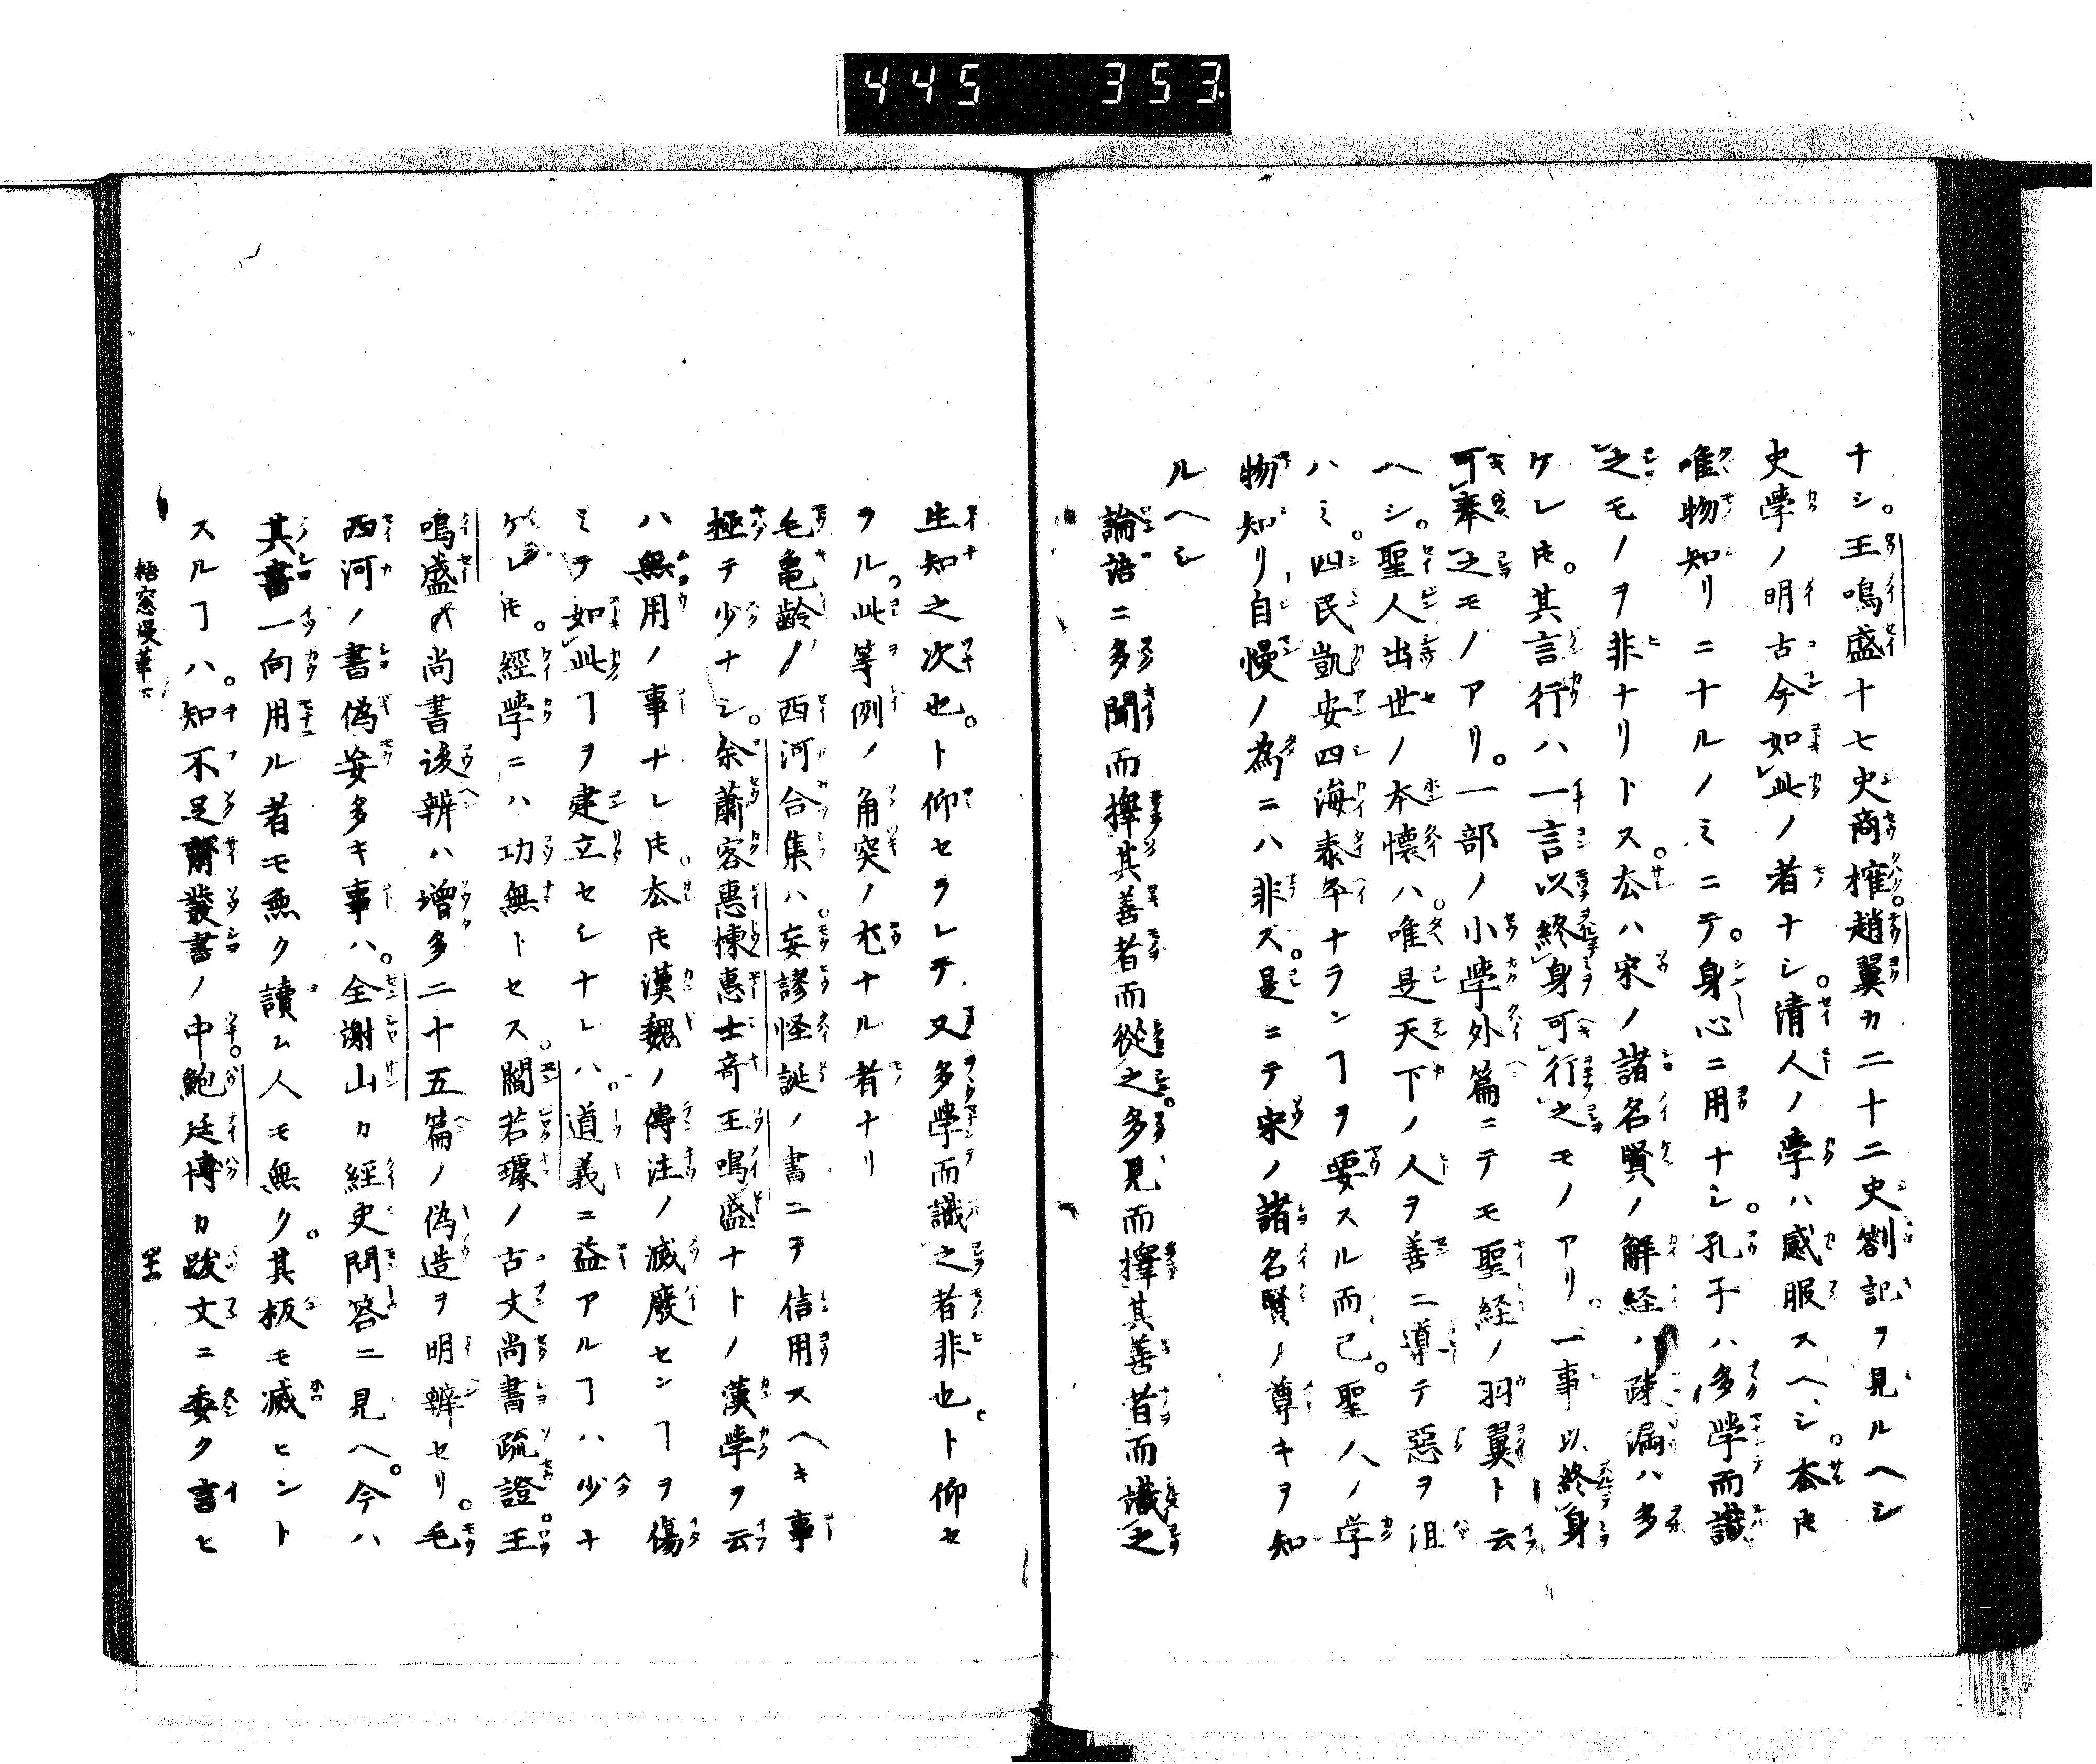 445 353
ナシ。王鳴盛十七史商榷。趙翼カ二十二史劄記ヲ見ルヘシ
史學ノ明古今如此ノ者ナシ。清人ノ學ハ感服スヘシ。厺𪜈
唯物知リニナルノミニテ。身心ニ用ナシ。孔子ハ多學而識
之モノヲ非ナリトス。厺ハ宋ノ諸名賢ノ解経ハ疎漏ハ多
ケレ𪜈。其言行ハ一言以終身可行之モノアリ。一事以終身
可奉之モノアリ。一部ノ小學外篇ニテモ聖経ノ羽翼ト云
ヘシ。聖人出世ノ本懐ハ。唯是天下ノ人ヲ善ニ導テ惡ヲ沮
ハミ。四民凱安四海泰平ナランヿヲ要スル而已。聖人ノ学
物知リ自慢ノ為ニハ非ス。是ニテ宋ノ諸名賢ノ尊キヲ知
ルヘシ
論語ニ多聞而擇其善者而從之。多見而擇其善者而識之
生知之次也。ト仰セラレテ又多學而識之者非也。ト仰セ
ラル。此等例ノ角突ノ尤ナル者ナリ
毛亀齡ノ西河合集ハ。妄謬怪誕ノ書ニテ信用スヘキ事
極テ少ナシ。余蕭客惠棟惠士竒王鳴盛ナトノ漢學ヲ云
ハ無用ノ事ナレ𪜈。厺𪜈漢魏ノ傳注ノ滅廢センヿヲ傷
ミテ如此ヿヲ建立セシナレハ。道義ニ益アルヿハ少ナ
ケレ𪜈。經學ニハ功無トセス。閻若璩ノ古文尚書疏證。王
鳴盛カ尚書後辨ハ増多二十五篇ノ偽造ヲ明辨セリ。毛
西河ノ書偽妄多キ事ハ。全謝山カ經史問答ニ見ヘ。今ハ
其書一向用ル者モ無ク讀ム人モ無ク。其板モ滅ヒント
スルヿハ。知不足齋叢書ノ中鮑廷博カ跋文ニ委ク言ヒ
梧窓漫筆下